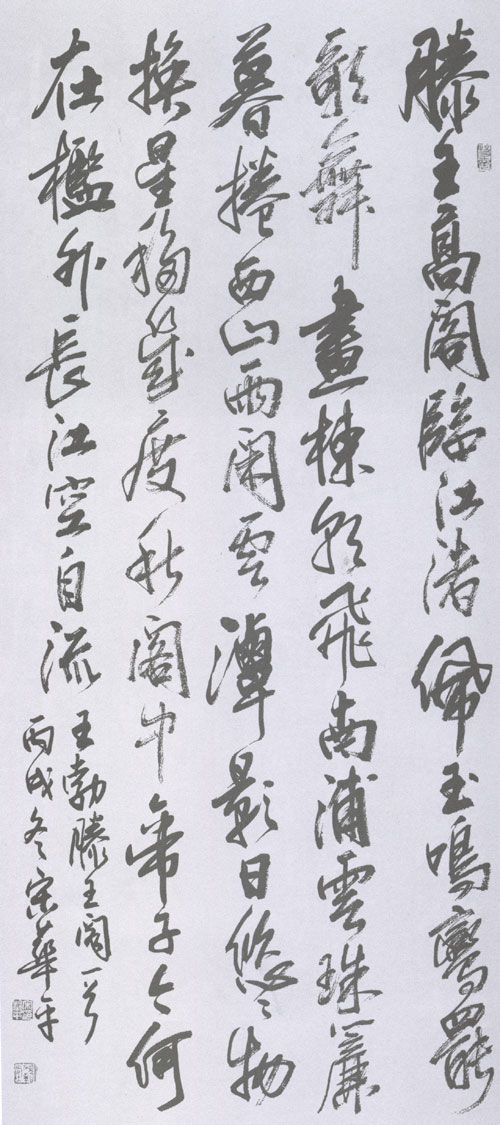 滕王高閣臨江渚佩玉鳴鸞罷
歌舞畫棟朝飛南浦雲珠簾
暮捲西山雨閑云潭影日悠々物
換星移幾度秋閣中帝子今何
在檻外長江空自流
王勃滕王閣一首
丙戌冬宋華平